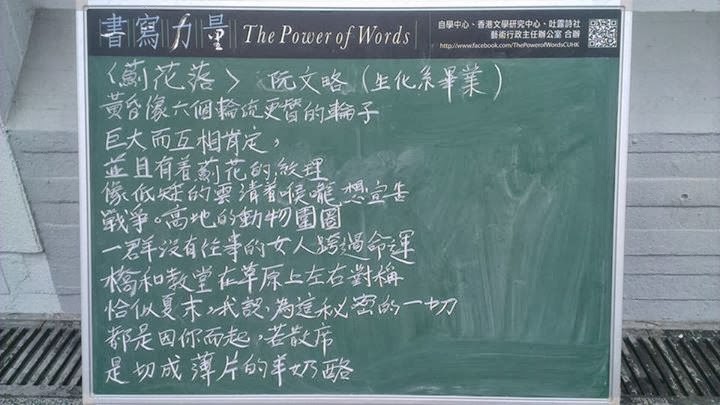 書寫力量 The Power of Words
自學中心、香港文學研究中心、吐露詩社
藝術行政主任辦公室 合辦
http://www.facebook.com/ThePowerofWordsCUHK
〈薊花落〉 阮文略(生化系畢業)
黃昏像六個輪流更替的輪子
巨大而互相肯定,
並且有着薊花的紋理
像低矮的雲清着喉嚨,想宣告
戰爭。高地的動物圍圈
一群沒有往事的女人跨過命運
橋和教堂在草原上左右對稱
恰似夏末,我說,為這秘密的一切
都是因你而起,若散席
是切成薄片的半奶酪